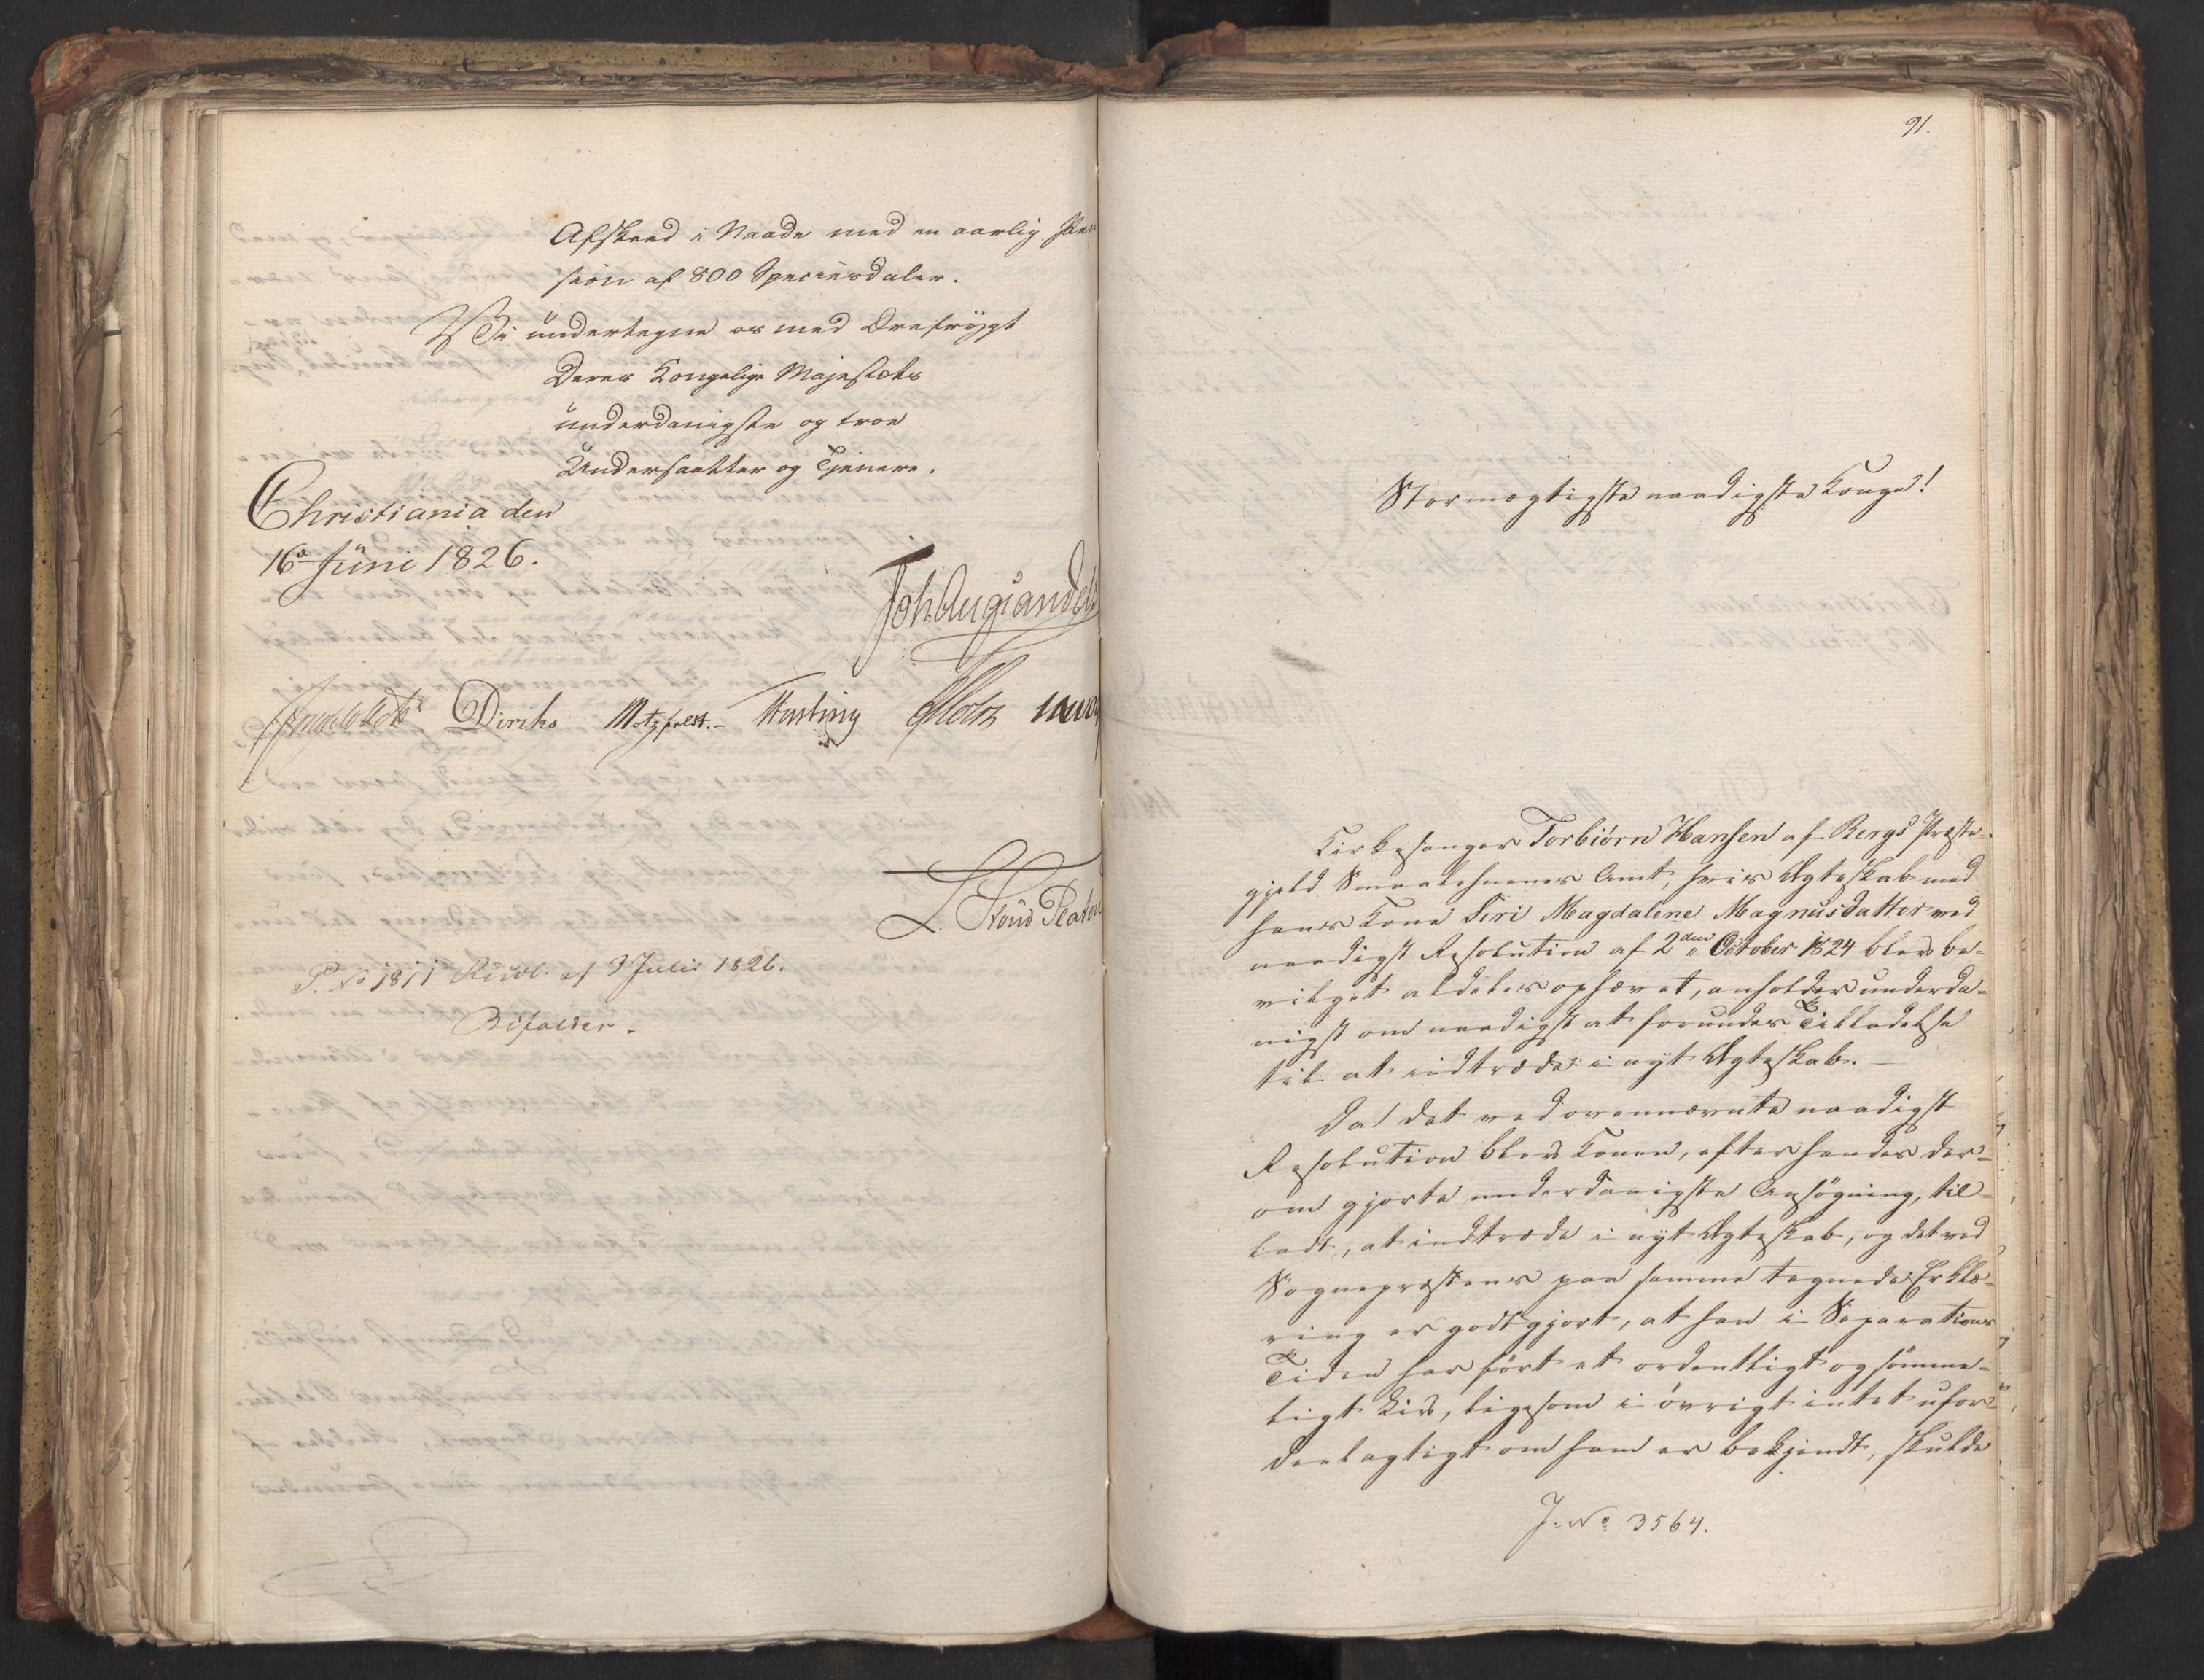 Afskeed i Naade med en aarlig Pen
sion af 800 Speciesdaler.
Vi undertegne os med Ærefrygt
Deres Kongelige Majestæts
underdanigste og troe
Undersaatter og Tjenere.
Christiania den
16d Juni 1826.
Joh. Aug: Sandels
Diriks Motzfeldt.
L. Stoud Platou
P. No 1811 Resol. af 3 Julii 1826.
Bifalder.
91.
Stormægtigste naadigste Konge!
Kirkesanger Torbiørn Hansen af Bergs Præste-
gjeld Smaalehnenes Amt, hvis Ægteskab med
hans Kone Siri Magdalene Magnusdatter ved
naadigst Resolution af 2den October 1824 blev be-
vilget aldeles ophævet, anholder underda-
nigst om naadigst at forundes Tilladelse
til at indtræde i nyt Ægteskab. —
Da det ved ovennævnte naadigst
Resolution blev Konen, efter hendes der-
om gjorte underdanigste Ansøgning, til-
ladt, at indtræde i nyt Ægteskab, og det ved
Sognepræstens paa samme tegnede Erklæ-
ring er godtgjort, at han i Separations
Tiden har ført et ordentligt og sømme-
ligt Liv, ligesom i øvrigt intet ufor-
deelagtigt om ham er bekjendt, skulde
J. No 3564.